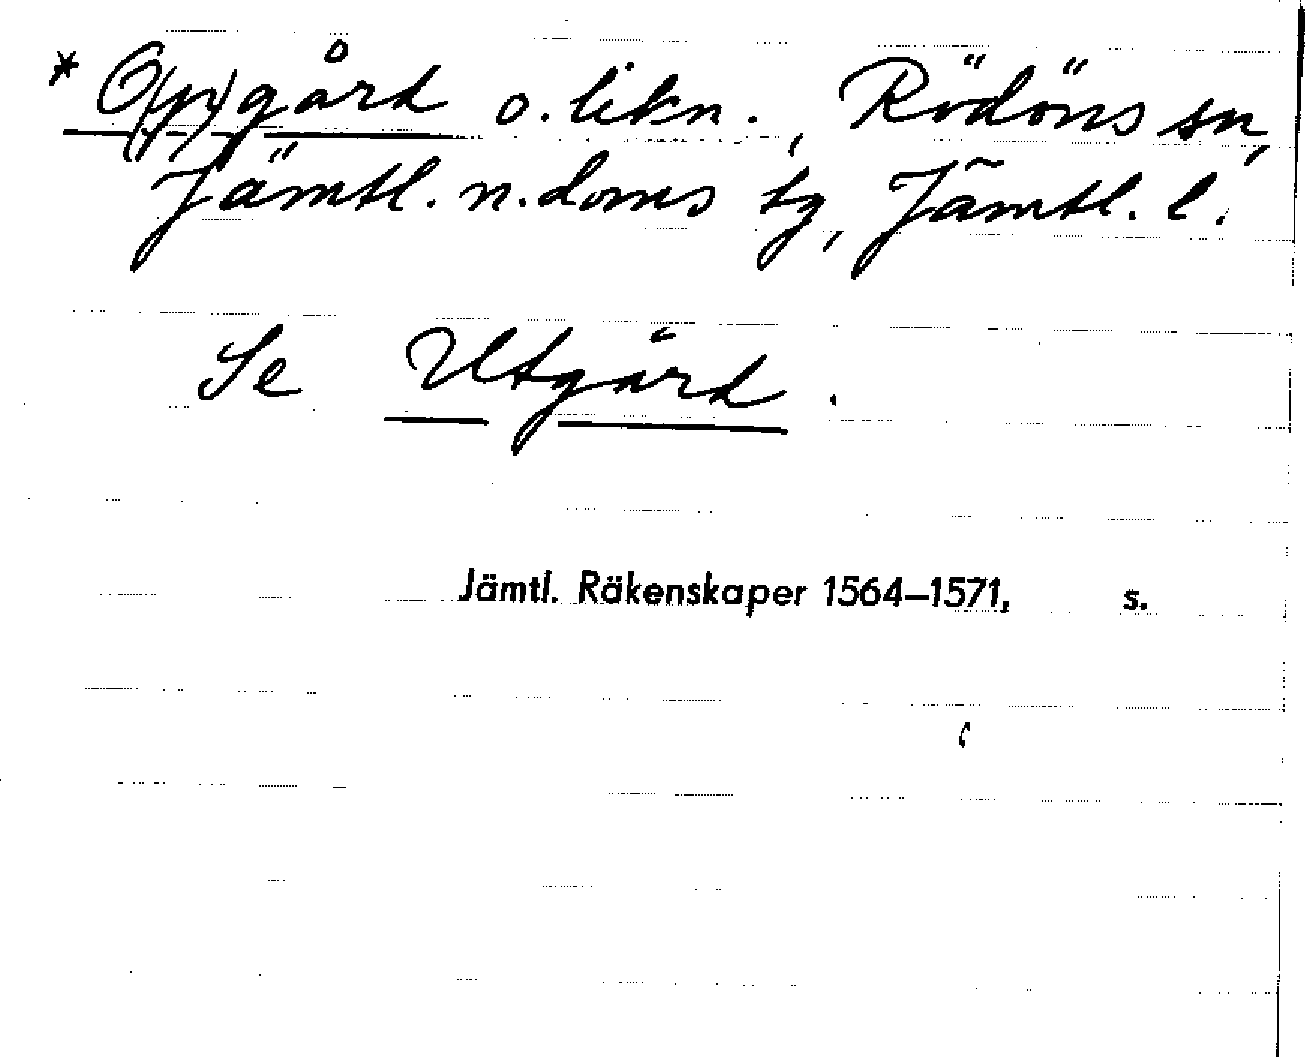 * O(pp)gård o. likn., Rödöns sn,
Jämtl. n. doms tg, Jämtl. l.
Se Utgård.
Jämtl. Räkenskaper 1564–1571, s.